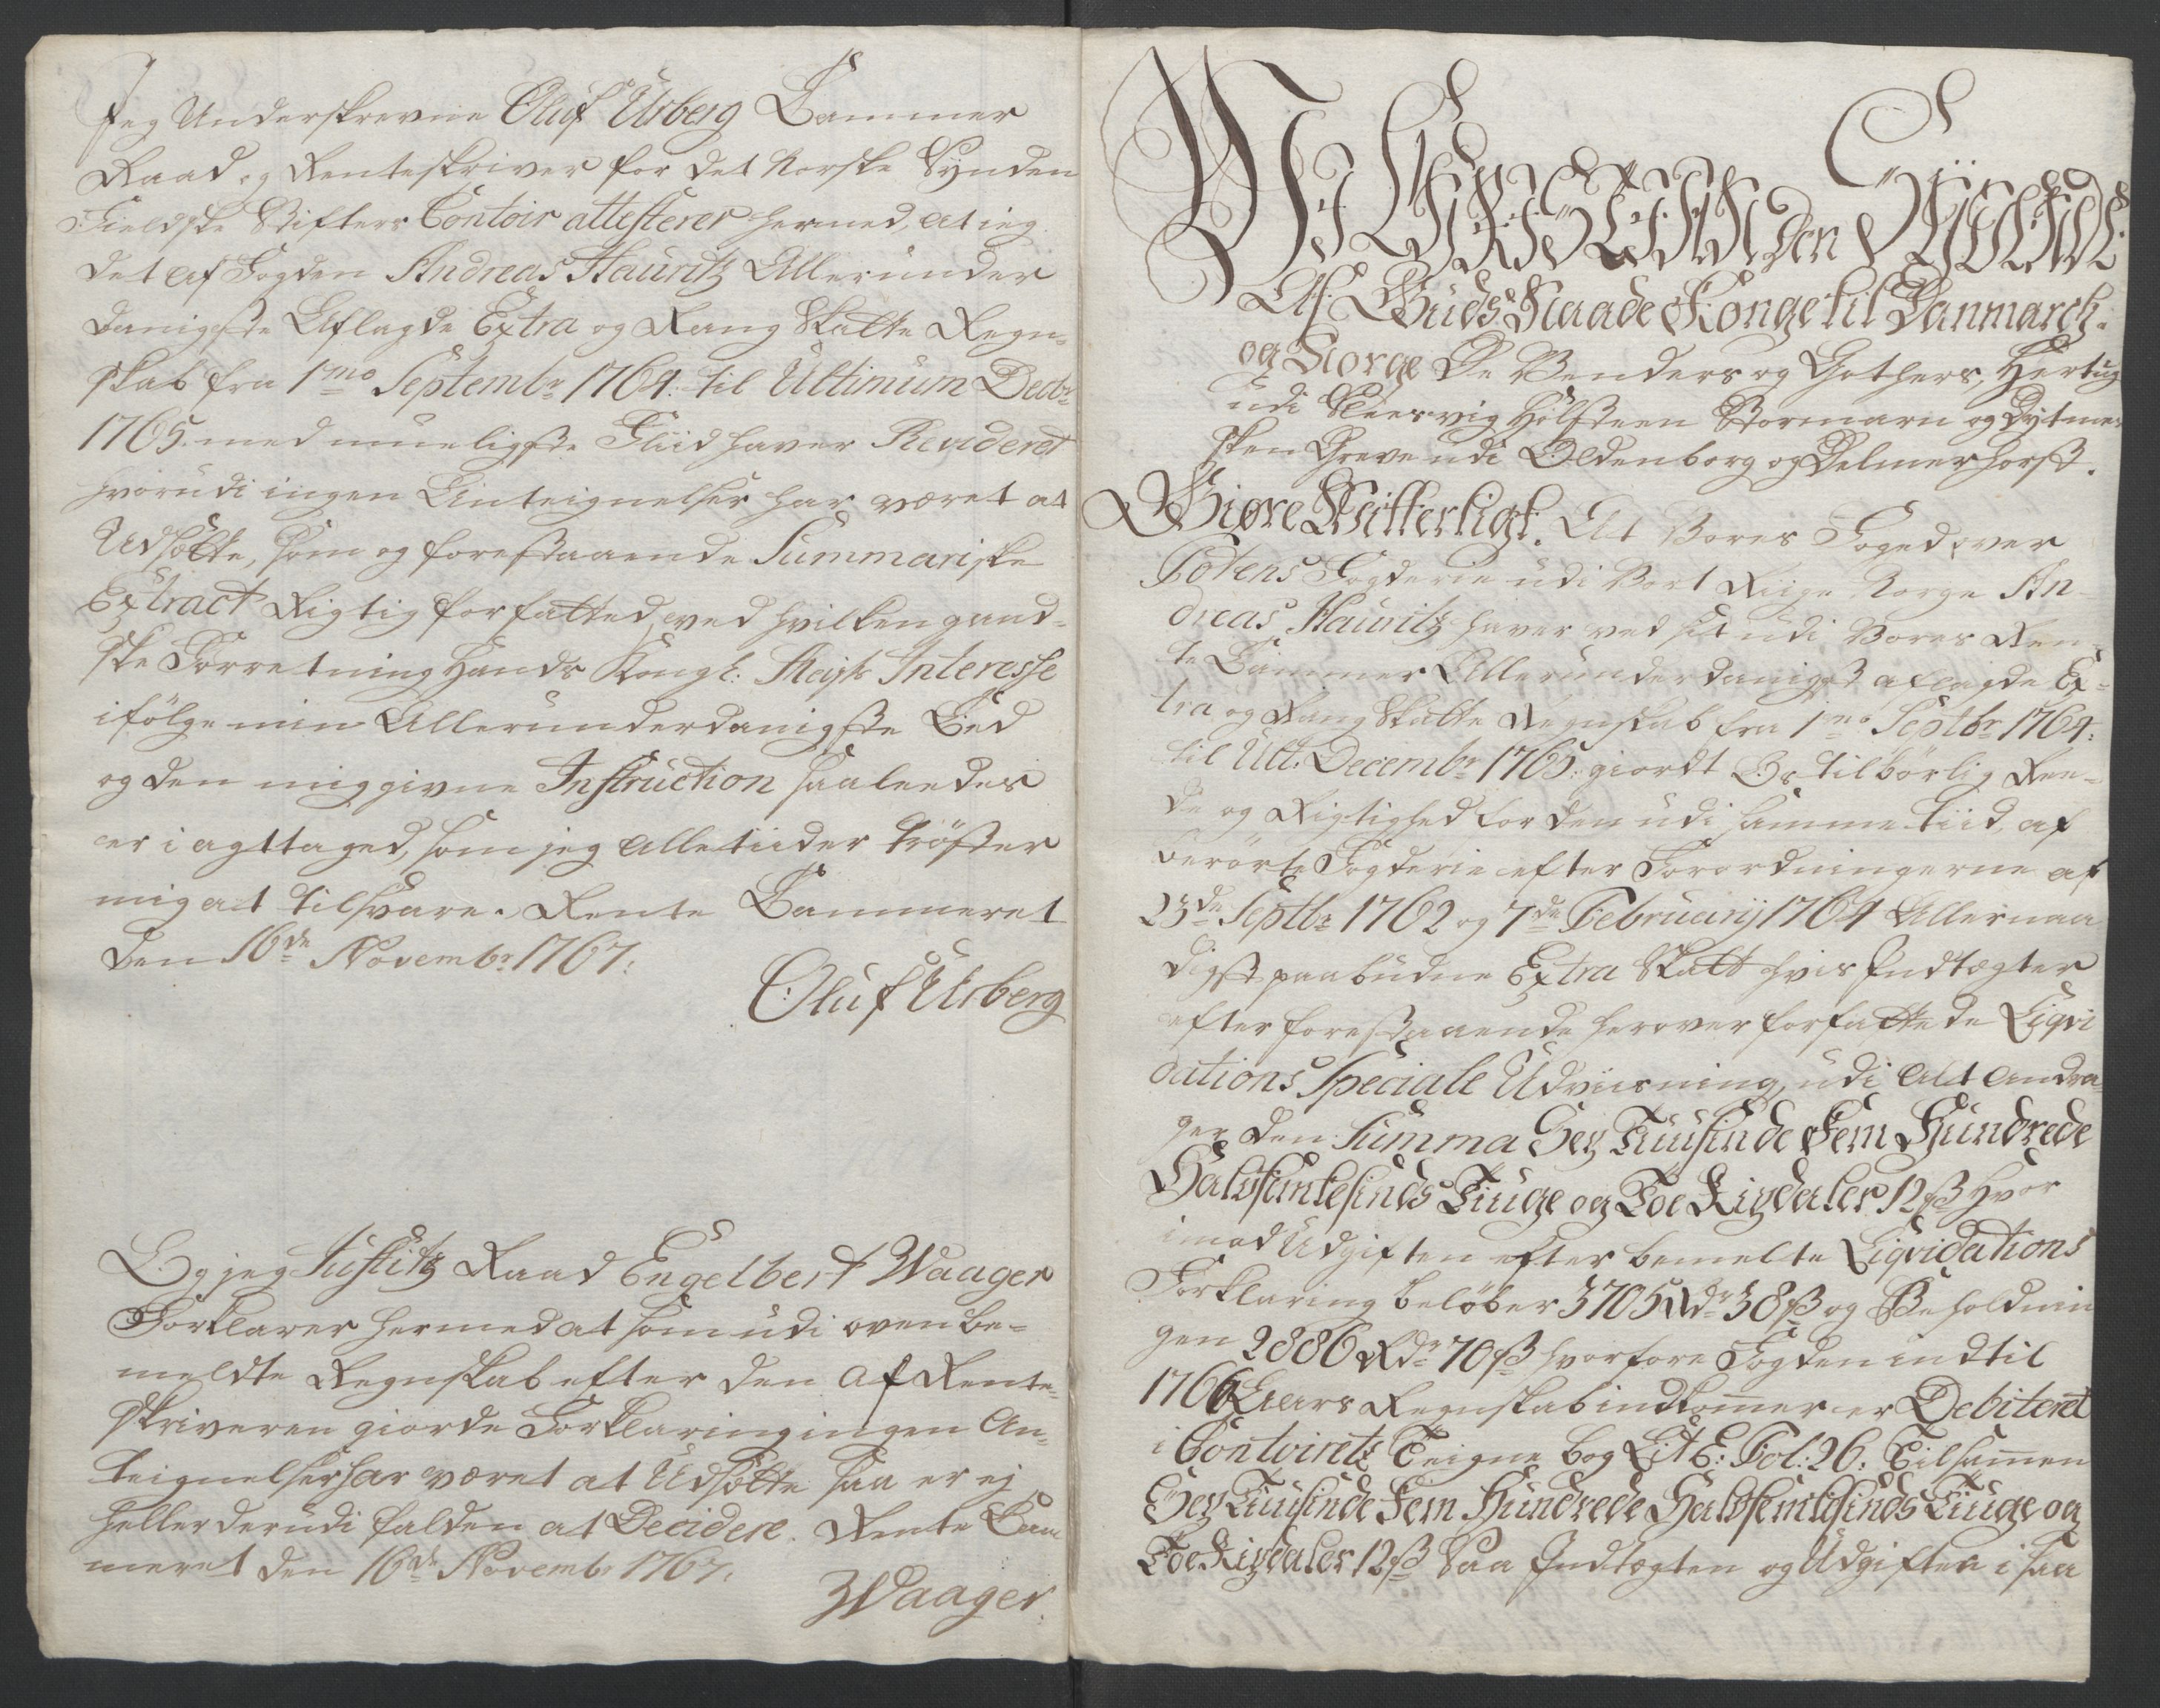 Jeg Underskrevne Oluf Urberg Cammer
Raad og Renteskriver for det Norske Synden
Fieldske Stifters Contoir attesterer hermed, at ieg
det af Fogden Andreas Hauritz Allerunder
danigste Aflagde Extra og Rang Skatte Regn-
skab fra 1mo Septembr 1764. til Ultimum Decbr
1765. med mueligste Fliid haver Revideret
hvorudi ingen Anteignelser har været at
Udsætte, som og forestaaende Summariske
Extract Rigtig forfatted, ved hvilken gand-
ske Forretning Hands Kongl: Mayts Interesse
ifölge min Allerunderdanigste Eed
og den mig givne Instruction saaleedes
er i agttaged, som jeg alle tiider tröster
mig at tilsvare. Rente Cammeret
den 16de Novembr 1767.
Oluf Urberg
Og jeg Justitz Raad Engelbert Waager
Forklarer hermed at som udi oven be-
meldte Regnskab efter den af Rente-
skriveren giorde Forklaring ingen An-
teignelser har været at Udsætte saa er ej
heller derudi falden at Decidere. Rente Cam
meret den 16de Novembr 1767.
Waager.
Wi CHRISTIAN den Syvende
Af Guds Naade Konge til Danmarch.
og Norge De Venders og Gothers, Hertug
udi Sleesvig Holsteen Stormarn og Dytmer
sken Greve udi Oldenborg og Delmenhorst.
Giøre Witterligt. At Vores Foged over
Fosens Fogderie udi Vort Riige Norge An-
dreas Hauritz haver ved sit udi Vores Ren-
te Cammer Allerunderdanigst aflagde Ex-
tra og Rang Skatte Regnskab fra 1mo Septbr 1764.
til Ult. Decembr 1765. giordt Os tilbörlig Ree-
de og Rigtighed for den udi samme tiid, af
berörte Fogderie efter Forordningerne af
23de Septbr 1762 og 7de Februarij 1764 Allernaa
digst paabudne Extra Skatt hvis Indtægter
efter forestaaende herover forfattede Liqvi
dations Speciale Udviisning, udi alt andra-
ger den Summa Sex Tuusinde Fem Hundrede
Halvfemtesinds Tiuge og Toe Rixdaler 12 ß Hvor
imod Udgiften efter bemelte Liqvidations
Forklaring beløber 3705 Rdr 38 ß og Beholdnin
gen 2886 Rdr 70 ß hvorfore Fogden indtil
1766 Aars Regnskab indkom̅er er Debiteret
i Contoirets Teigne Bog Lit E: Fol: 26. Tilsam̅en
Sex Tuusinde Fem Hundrede Halvfemtesinds Tiuge og
Toe Rixdaler 12 ß Saa Indtægten og Udgiften i saa